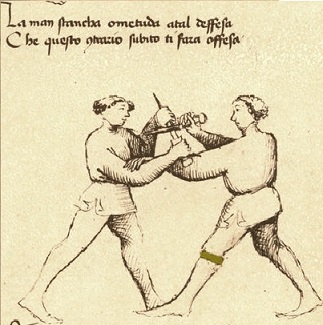 La man stancha o metuda a tal deffesa
Che questo 9trario subito ti fara offesa